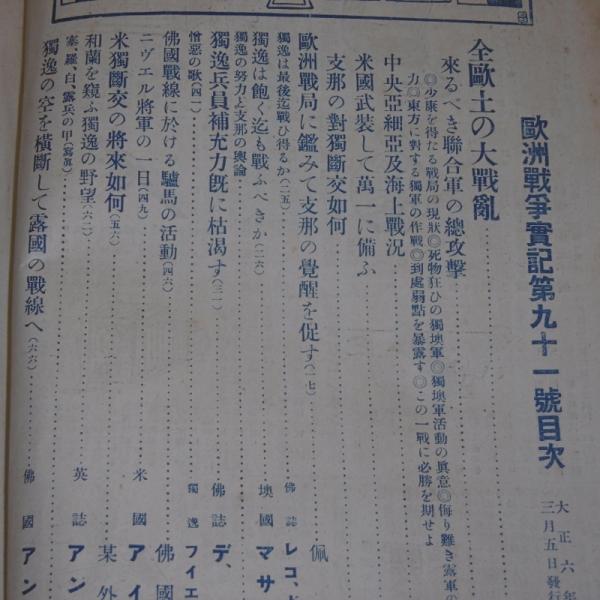 歐洲戰爭實記第九十一號目次
大正六年
三月五日發行
全歐土の大戰亂
來るべき聯合軍の總攻擊
◎少康を得たる戰局の現狀◎死物狂ひの獨墺軍◎獨墺軍活動の眞意◎侮り難き露軍の
力◎東方に對する獨軍の作戰◎到處弱點を暴露す◎この一戰に必勝を期せよ
中央亞細亞及海上戰況
米國武裝して萬一に備ふ
支那の對獨斷交如何
歐洲戰局に鑑みて支那の覺醒を促す(一七) 佩
獨逸は最後迄戰ひ得るか(二五) 佛誌 レコ、ド
獨逸は飽く迄も戰ふべきか(二六) 墺國 マサ
獨逸の努力と支那の輿論
獨逸兵員補充力旣に枯渴す(三一) 佛誌 デ、
憎惡の歌(四一) 獨逸 フイエ
佛國戰線に於ける驢馬の活動(四六) 佛國
ニヴエル將軍の一日(四九) 米國 アイ
米獨斷交の將來如何(五六) 某外
和蘭を窺ふ獨逸の野望(六二) 英誌 アン
塞、羅、白、露兵の甲(寫眞)
獨逸の空を橫斷して露國の戰線へ(六六) 佛國 アン